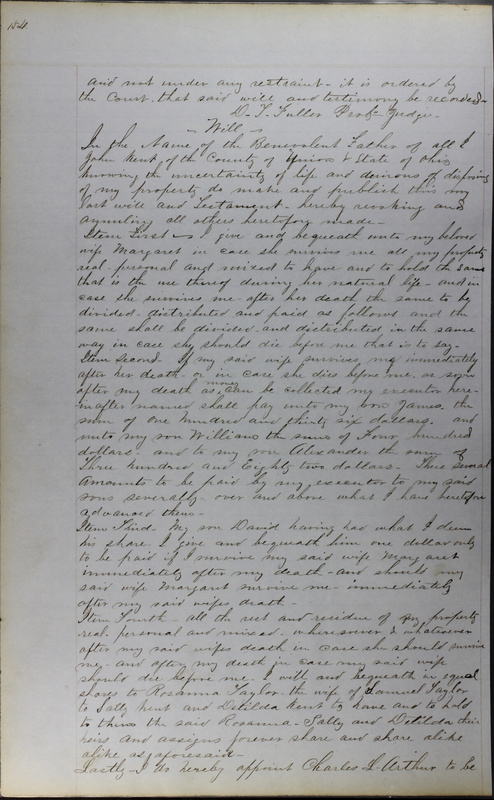 184
and not under any restraint - it is ordered by
the Court that said will and testimony be recorded -
D. T. Fuller Prob. Judge -
- Will -
In the Name of the Benevolent Father of all I
John Kent of the County of Union & State of Ohio
knowing the uncertainty of life and desirous of disposing
of my property do make and publish this my
last will and Testament - hereby revoking and
annulling all others heretofore made -
Item First - I give and bequeath unto my beloved
wife Margaret in case she survives me all my property
real - personal and mixed to have and to hold the same
that is the use thereof during her natural life - and in
case she survives me - after her death the same to be
divided - distributed and paid as follows and the
same shall be divided and distributed in the same
way in case she should die before me that is to say -
Item Second. If my said wife survives me immediately
after her death - or in case she dies before me, as soon
after my death as money can be collected my executor here-
inafter named shall pay unto my son James, the
sum of One hundred and thirty six dollars, and
unto my son William the sum of Four hundred
dollars - and to my son Alexander the sum of
Three hundred and Eighty two dollars - These several
amounts to be paid by my executor to my said
sons severally - over and above what I have heretofore
advanced them -
Item Third - My son David having had what I deem
his share I give and bequeath him one dollar only
to be paid if I survive my said wife Margaret
immediately after my death - and should my
said wife Margaret survive me - immediately
after my said wifes death -
Item Fourth - All the rest and residue of my property
real, personal and mixed - wheresoever & whatsoever
after my said wifes death in case she should survive
me - and after my death in case my said wife
should die before me. I will and bequeath in equal
shares to Rosanna Taylor the wife of Samuel Taylor
to Sally Kent and Detilda Kent to have and to hold
to them the said Rosanna - Sally and Detilda their
heirs and assigns forever share and share alike
alike as aforesaid -
Lastly - I do hereby appoint Charles L. Arthur to be